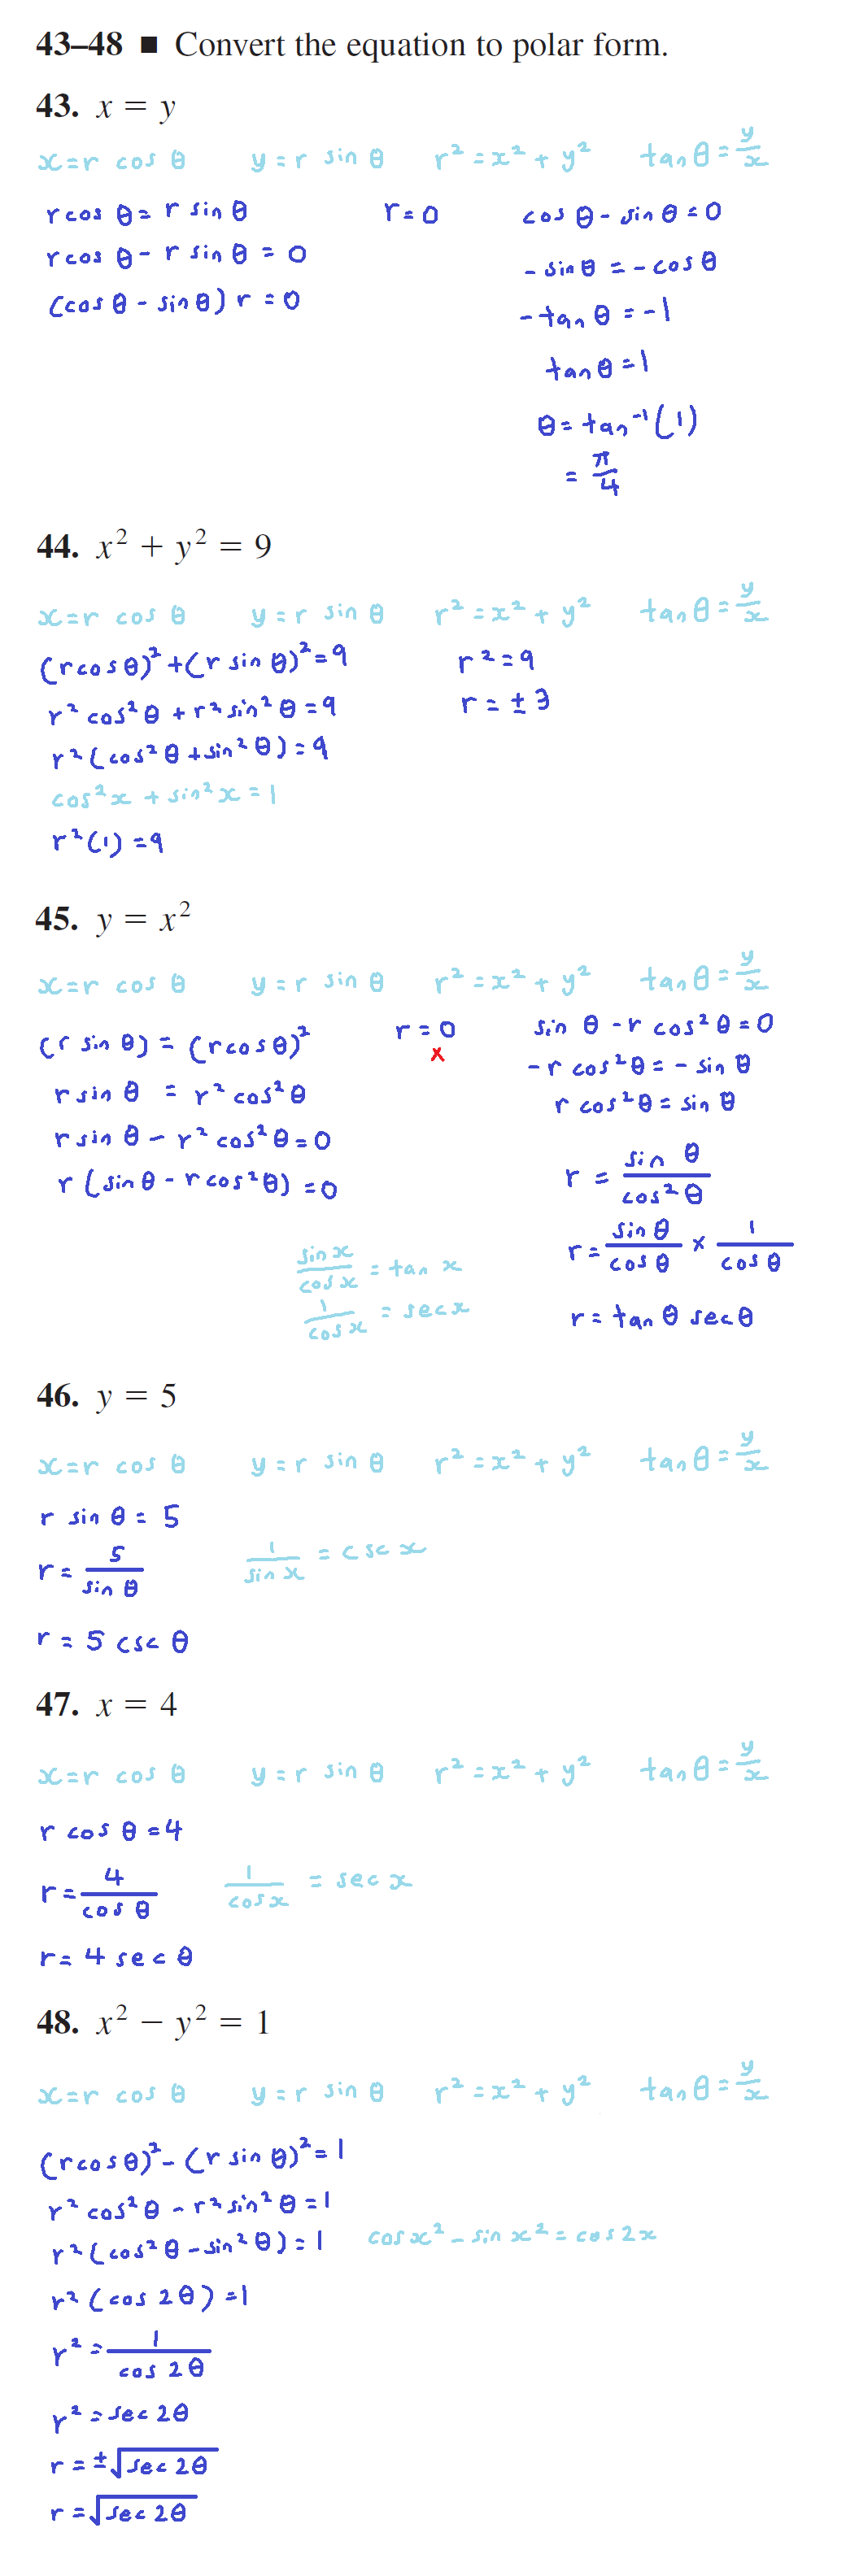 43–48 ■ Convert the equation to polar form.
43. x = y
x = r cos θ y = r sin θ r² = x² + y² tan θ = y/x
r cos θ = r sin θ r = 0 cos θ - sin θ = 0
r cos θ - r sin θ = 0 - sin θ = - cos θ
(cos θ - sin θ) r = 0 - tan θ = -1
tan θ = 1
θ = tan⁻¹(1)
= π/4
44. x² + y² = 9
x = r cos θ y = r sin θ r² = x² + y² tan θ = y/x
(r cos θ)² + (r sin θ)² = 9 r² = 9
r² cos² θ + r² sin² θ = 9 r = ± 3
r² (cos² θ + sin² θ) = 9
cos² x + sin² x = 1
r² (1) = 9
45. y = x²
x = r cos θ y = r sin θ r² = x² + y² tan θ = y/x
(r sin θ) = (r cos θ)² r = 0 sin θ - r cos² θ = 0
x
r sin θ = r² cos² θ - r cos² θ = - sin θ
r sin θ - r² cos² θ = 0 r cos² θ = sin θ
r (sin θ - r cos² θ) = 0 r = sin θ / cos² θ
sin x / cos x = tan x r = sin θ / cos θ × 1 / cos θ
1 / cos x = sec x r = tan θ sec θ
46. y = 5
x = r cos θ y = r sin θ r² = x² + y² tan θ = y/x
r sin θ = 5
r = 5 / sin θ 1 / sin x = csc x
r = 5 csc θ
47. x = 4
x = r cos θ y = r sin θ r² = x² + y² tan θ = y/x
r cos θ = 4
r = 4 / cos θ 1 / cos x = sec x
r = 4 sec θ
48. x² − y² = 1
x = r cos θ y = r sin θ r² = x² + y² tan θ = y/x
(r cos θ)² - (r sin θ)² = 1
r² cos² θ - r² sin² θ = 1
r² (cos² θ - sin² θ) = 1 cos x² - sin x² = cos 2x
r² (cos 2θ) = 1
r² = 1 / cos 2θ
r² = sec 2θ
r = ±√sec 2θ
r = √sec 2θ